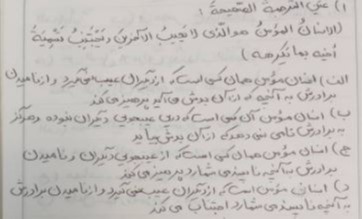 ۱) عيّن الترجمة الصحيحة :
(الإنسان المؤمن هو الّذي لا يعيب الآخرين و يجتنب تسمية
أخيه بما يكرهه)
الف) انسان مؤمن همان کسی است که از دیگران عیب می‌گیرد و از نامیدن
برادرش به آنچه که از آن بدش می‌آید پرهیز می‌کند
ب) انسان مؤمن آن کسی است که عیبجویی دیگران نبوده و هرگز
به برادرش نامی نمی‌دهد که از آن بدش بیاید
ج) انسان مؤمن همان کسی است که از عیبجویی دیگران و نامیدن
برادرش به آنچه ناپسند می‌شمارد پرهیز می‌کند
د) انسان مؤمن کسی است که از دیگران عیب نمی‌گیرد و از نامیدن برادرش
به آنچه ناپسند می‌شمارد اجتناب می‌کند